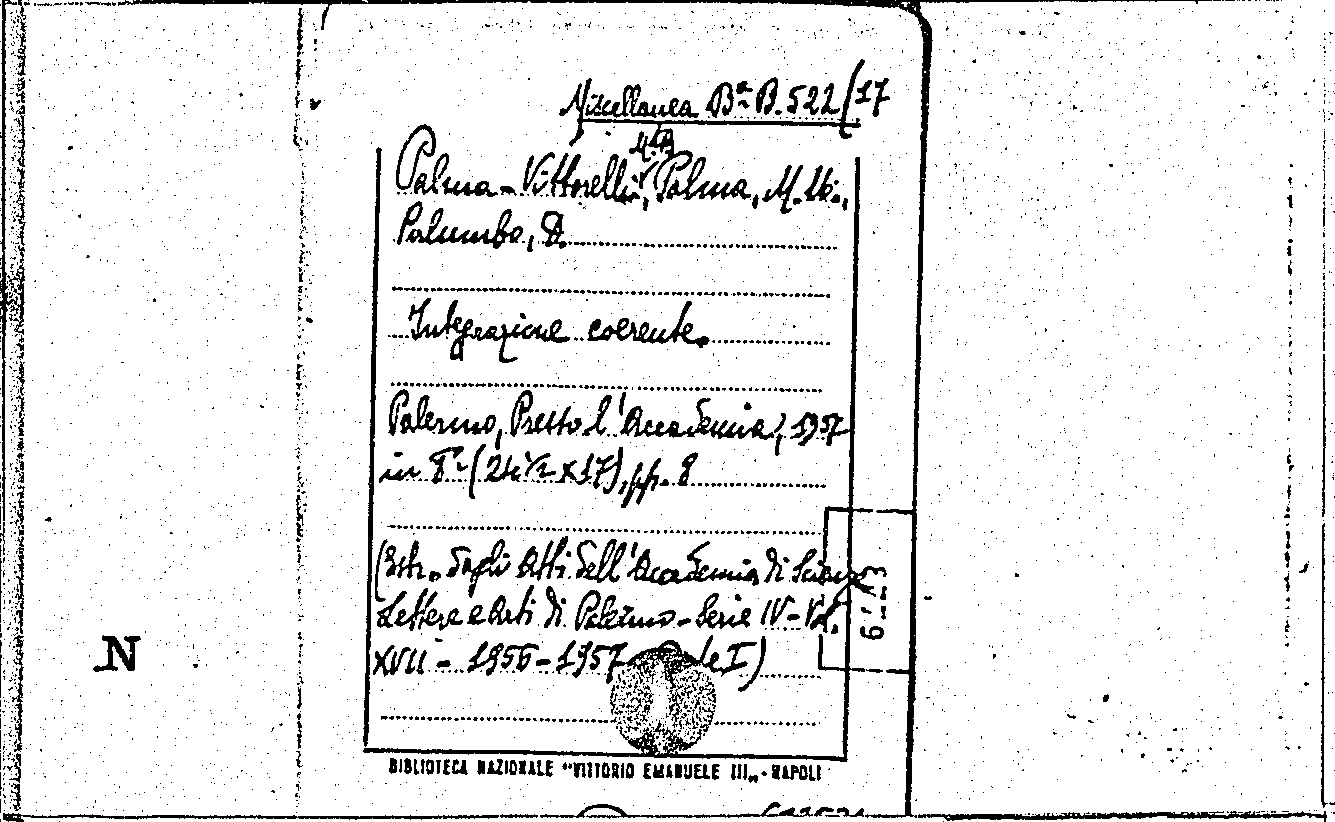 Miscellanea Bª B. 522/17
M.B.
Palma-Vittorelli, Palma, M.U.,
Palumbo, D.
Integrazione coerente.
Palermo, Presso l'Accademia, 1957
in 8º (24½ x 17), pp. 8
(Estr. dagli Atti dell'Accademia di Scienze
Lettere e Arti di Palermo - Serie IV - Vol.
XVII - 1956-1957 I)
N
BIBLIOTECA NAZIONALE "VITTORIO EMANUELE III" - NAPOLI